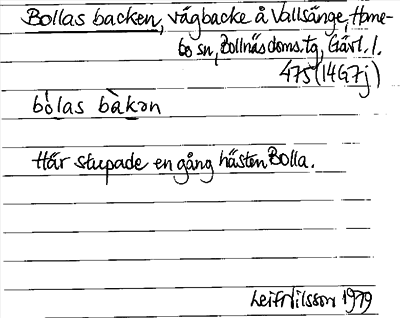 Bollas backen, vägbacke å Vallsänge, Home-
bo sn, Bollnäs doms. tg, Gävl. l.
475 (14G7j)
bòlas bàkən
Här stupade en gång hästen Bolla.
Leif Nilsson 1979